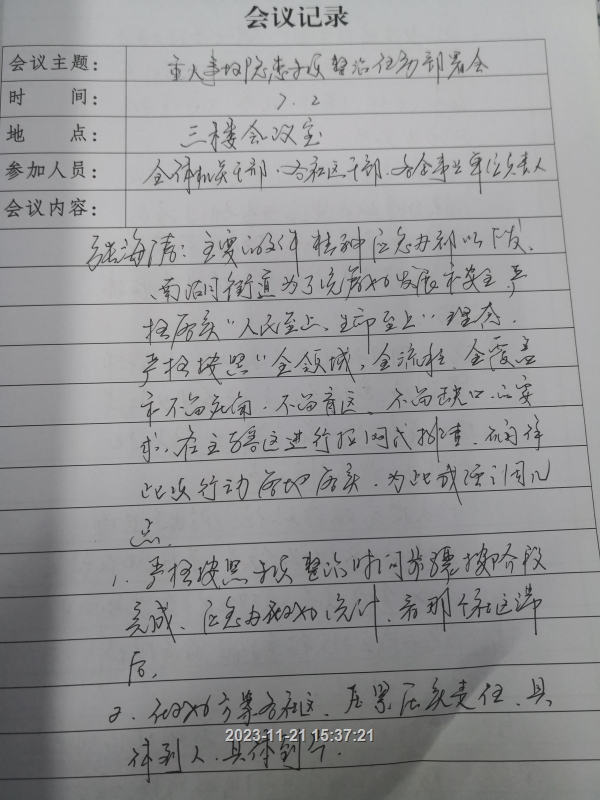 会议记录
会议主题： 重大事故隐患专项整治任务部署会
时 间： 7.2
地 点： 三楼会议室
参加人员： 全体机关干部、各社区干部、各企事业单位负责人
会议内容：
张海涛：主要的文件精神应急办都以下发、
南沿河街道为了统筹好发展和安全，严
格落实“人民至上、生命至上”理念，
严格按照“全领域、全流程、全覆盖
和不留死角、不留盲区、不留缺口”的要
求，在主辖区进行拉网式排查，确保
此次行动落地落实，为此我强调几
点
1、严格按照专项整治时间步骤按阶段
完成，应急办做好统计，看那个社区滞
后，
2、做好方案各社区，压紧压实责任，具
体到人，具体到个，
2023-11-21 15:37:21